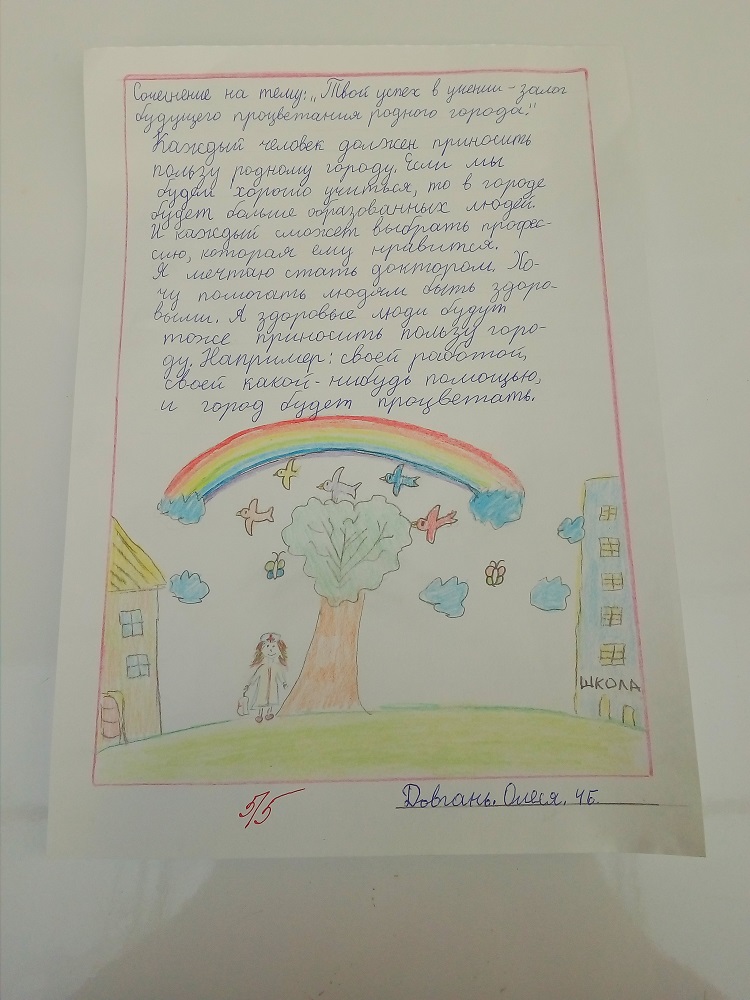 Сочинение на тему: „Твой успех в учении - залог
будущего процветания родного города."
Каждый человек должен приносить
пользу родному городу. Если мы
будем хорошо учиться, то в городе
будет больше образованных людей.
И каждый сможет выбрать профес-
сию, которая ему нравится.
Я мечтаю стать доктором. Хо-
чу помогать людям быть здоро-
выми. А здоровые люди будут
тоже приносить пользу горо-
ду. Например: своей работой,
своей какой-нибудь помощью,
и город будет процветать.
ШКОЛА
5/5
Довгань. Олеся. 4Б